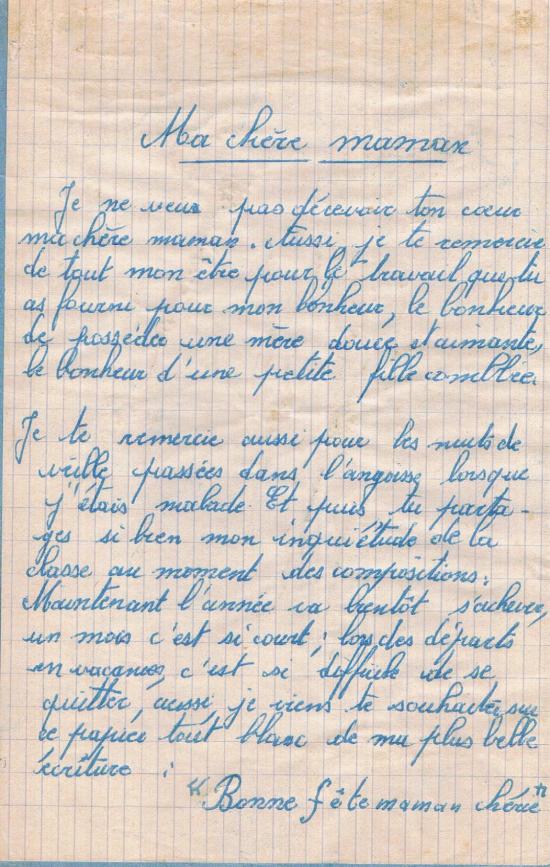 Ma chère maman
Je ne veux pas décevoir ton cœur
ma chère maman. Aussi, je te remercie
de tout mon être pour le travail que tu
as fourni pour mon bonheur, le bonheur
de posséder une mère douce et aimante,
le bonheur d'une petite fille comblée.
Je te remercie aussi pour les nuits de
veille passées dans l'angoisse lorsque
j'étais malade. Et puis tu parta-
ges si bien mon inquiétude de la
classe au moment des compositions.
Maintenant l'année va bientôt s'achever,
un mois c'est si court ; lors des départs
en vacances, c'est si difficile de se
quitter, aussi, je viens te souhaiter sur
ce papier tout blanc de ma plus belle
écriture :
"Bonne fête maman chérie"